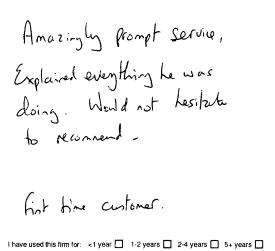 Amazingly prompt service,
Explained everything he was
doing. Would not hesitate
to recommend -
first time customer.
I have used this firm for: <1 year 1-2 years 2-4 years 5+ years